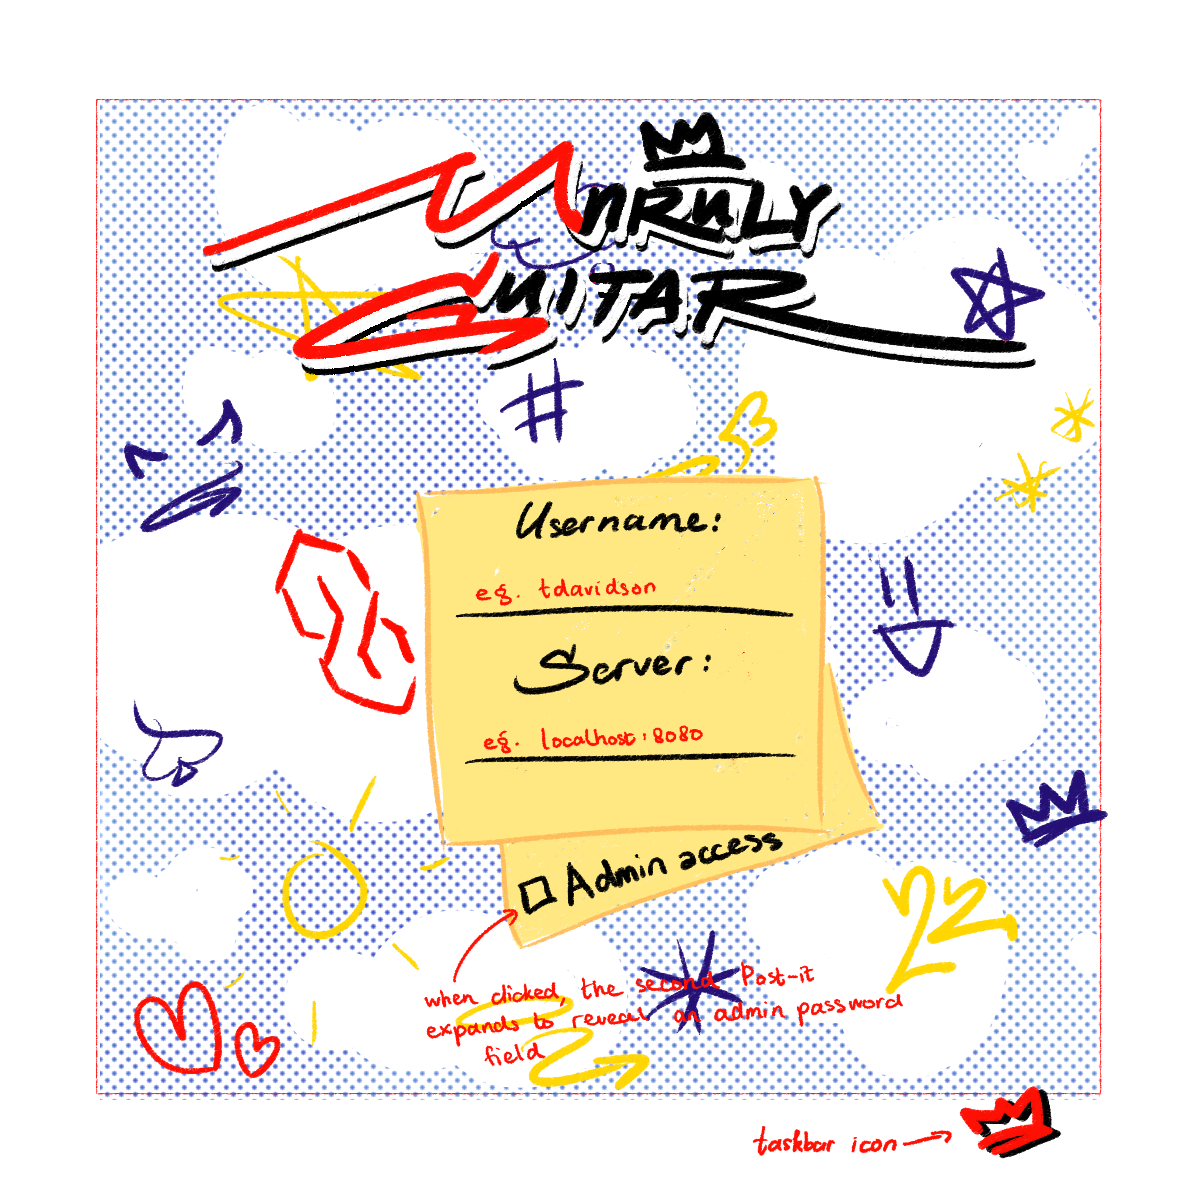 UNRULY
GUITAR
#
Username:
eg. tdavidson
Server:
eg. localhost:8080
Admin access
when clicked, the second Post-it
expands to reveal an admin password
field
taskbar icon